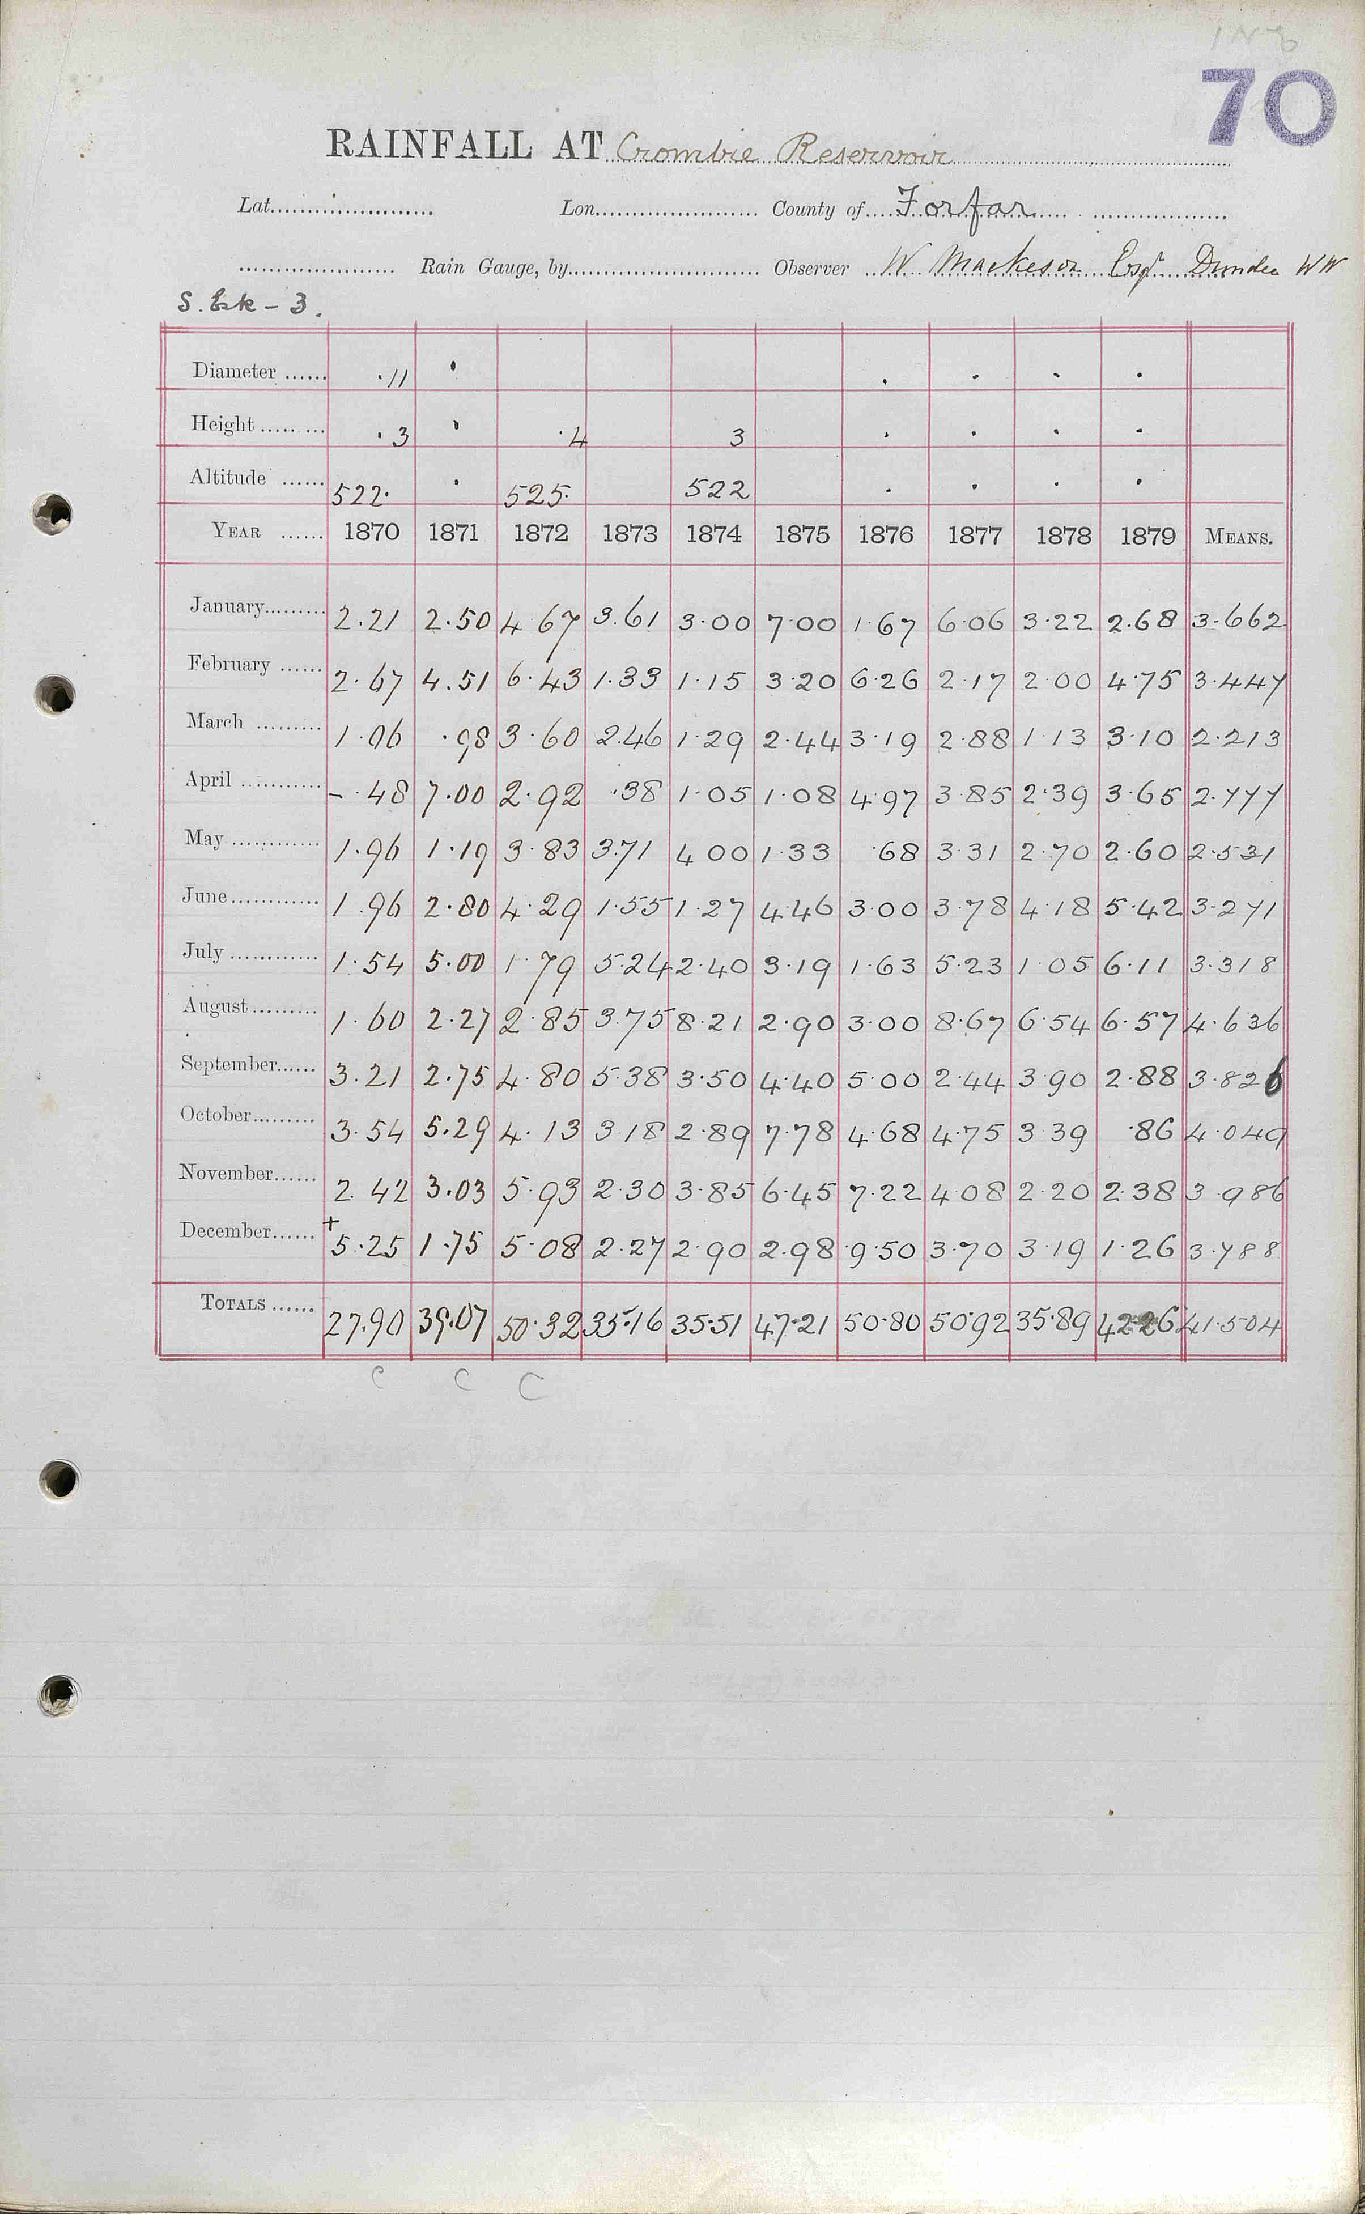 70
RAINFALL AT Crombie Reservoir
Lat. Lon. County of Forfar
Rain Gauge, by Observer W Mackeson Esqr Dundee WW
S. Esk - 3.
Diameter ...... ·11 · · · · ·
Height ...... ·3 · ·4 3 · · · ·
Altitude ...... 522· · 525· 522 · · · ·
YEAR ...... 1870 1871 1872 1873 1874 1875 1876 1877 1878 1879 MEANS.
January 2.21 2.50 4.67 3.61 3.00 7.00 1.67 6.06 3.22 2.68 3.662
February 2.67 4.51 6.43 1.33 1.15 3.20 6.26 2.17 2.00 4.75 3.447
March 1.06 .98 3.60 2.46 1.29 2.44 3.19 2.88 1.13 3.10 2.213
April - .48 7.00 2.92 .38 1.05 1.08 4.97 3.85 2.39 3.65 2.777
May 1.96 1.19 3.83 3.71 4.00 1.33 .68 3.31 2.70 2.60 2.531
June 1.96 2.80 4.29 1.55 1.27 4.46 3.00 3.78 4.18 5.42 3.271
July 1.54 5.00 1.79 5.24 2.40 3.19 1.63 5.23 1.05 6.11 3.318
August 1.60 2.27 2.85 3.75 8.21 2.90 3.00 8.67 6.54 6.57 4.636
September 3.21 2.75 4.80 5.38 3.50 4.40 5.00 2.44 3.90 2.88 3.826
October 3.54 5.29 4.13 3.18 2.89 7.78 4.68 4.75 3.39 .86 4.049
November 2.42 3.03 5.93 2.30 3.85 6.45 7.22 4.08 2.20 2.38 3.986
December + 5.25 1.75 5.08 2.27 2.90 2.98 9.50 3.70 3.19 1.26 3.788
TOTALS 27.90 39.07 50.32 35.16 35.51 47.21 50.80 50.92 35.89 42.26 41.504
C C C